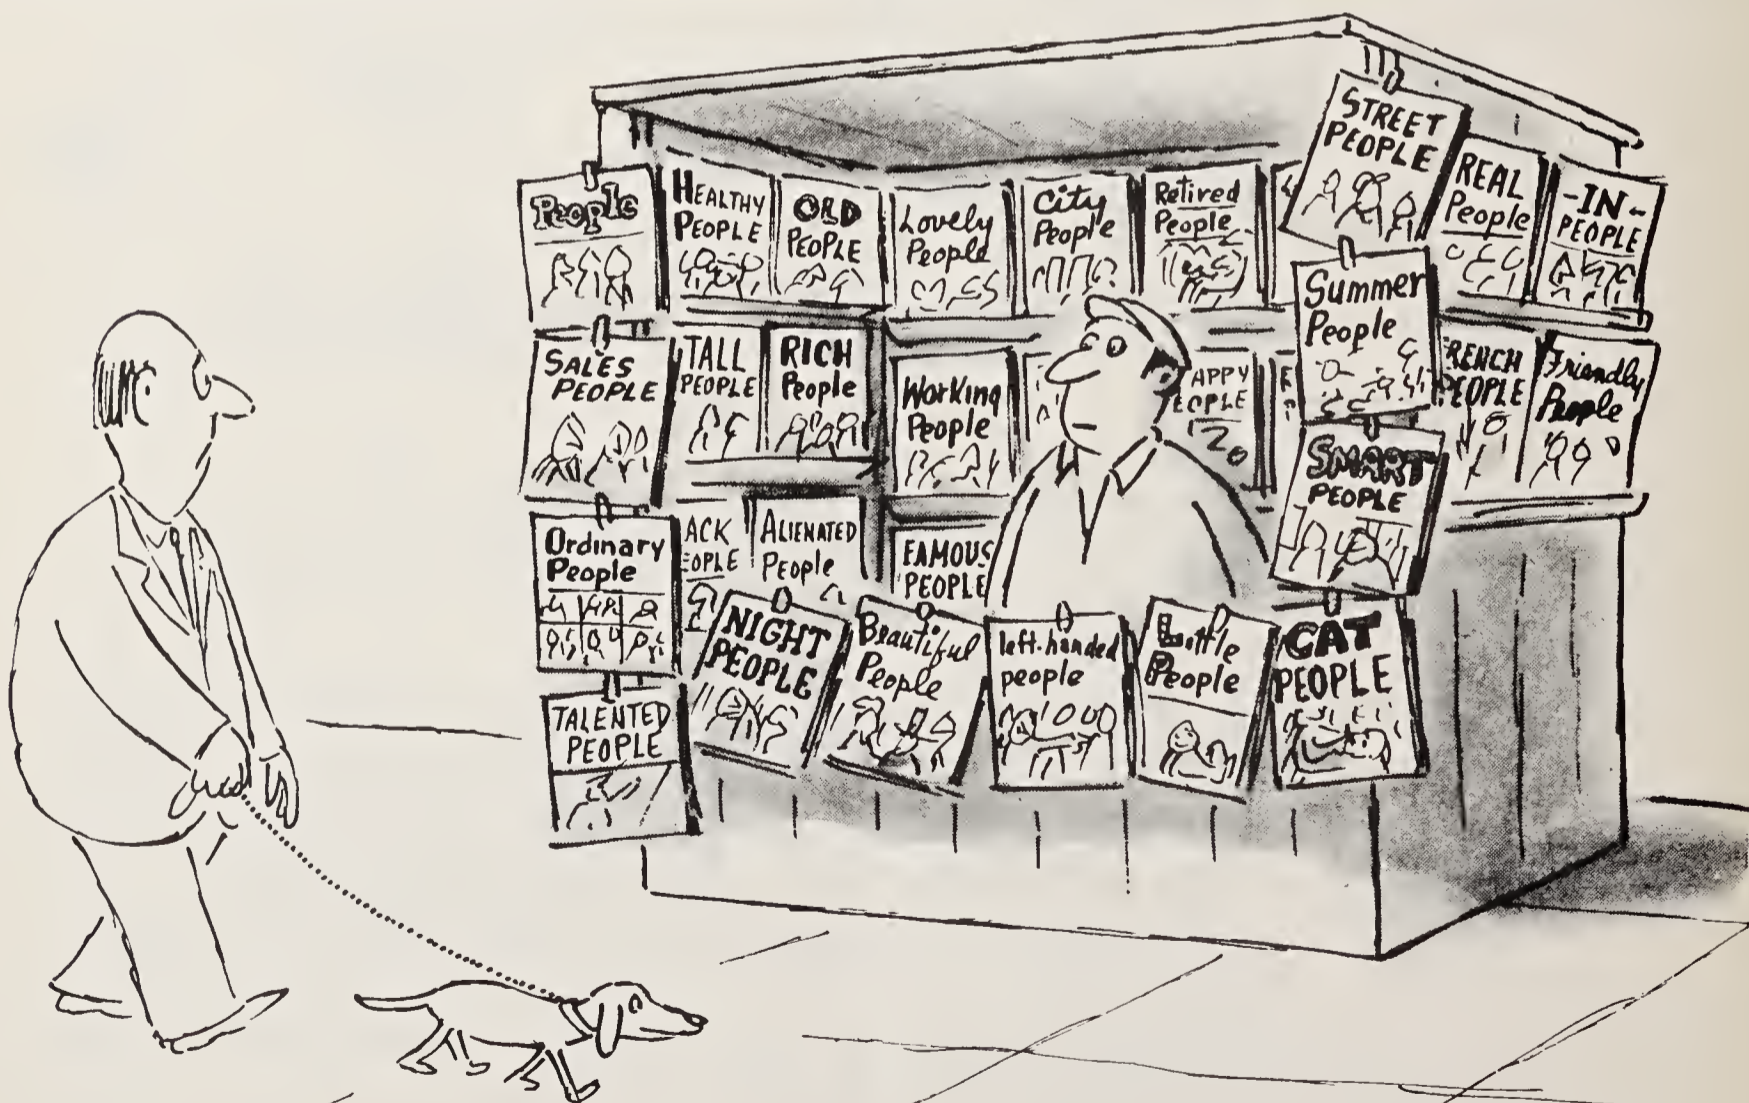 People
HEALTHY
PEOPLE
OLD
PEOPLE
Lovely
People
City
People
Retired
People
STREET
PEOPLE
REAL
People
-IN-
PEOPLE
SALES
PEOPLE
TALL
PEOPLE
RICH
People
Working
People
APPY
EOPLE
Summer
People
RENCH
PEOPLE
Friendly
People
Ordinary
People
ACK
EOPLE
ALIENATED
People
FAMOUS
PEOPLE
SMART
PEOPLE
TALENTED
PEOPLE
NIGHT
PEOPLE
Beautiful
People
left-handed
people
Little
People
CAT
PEOPLE